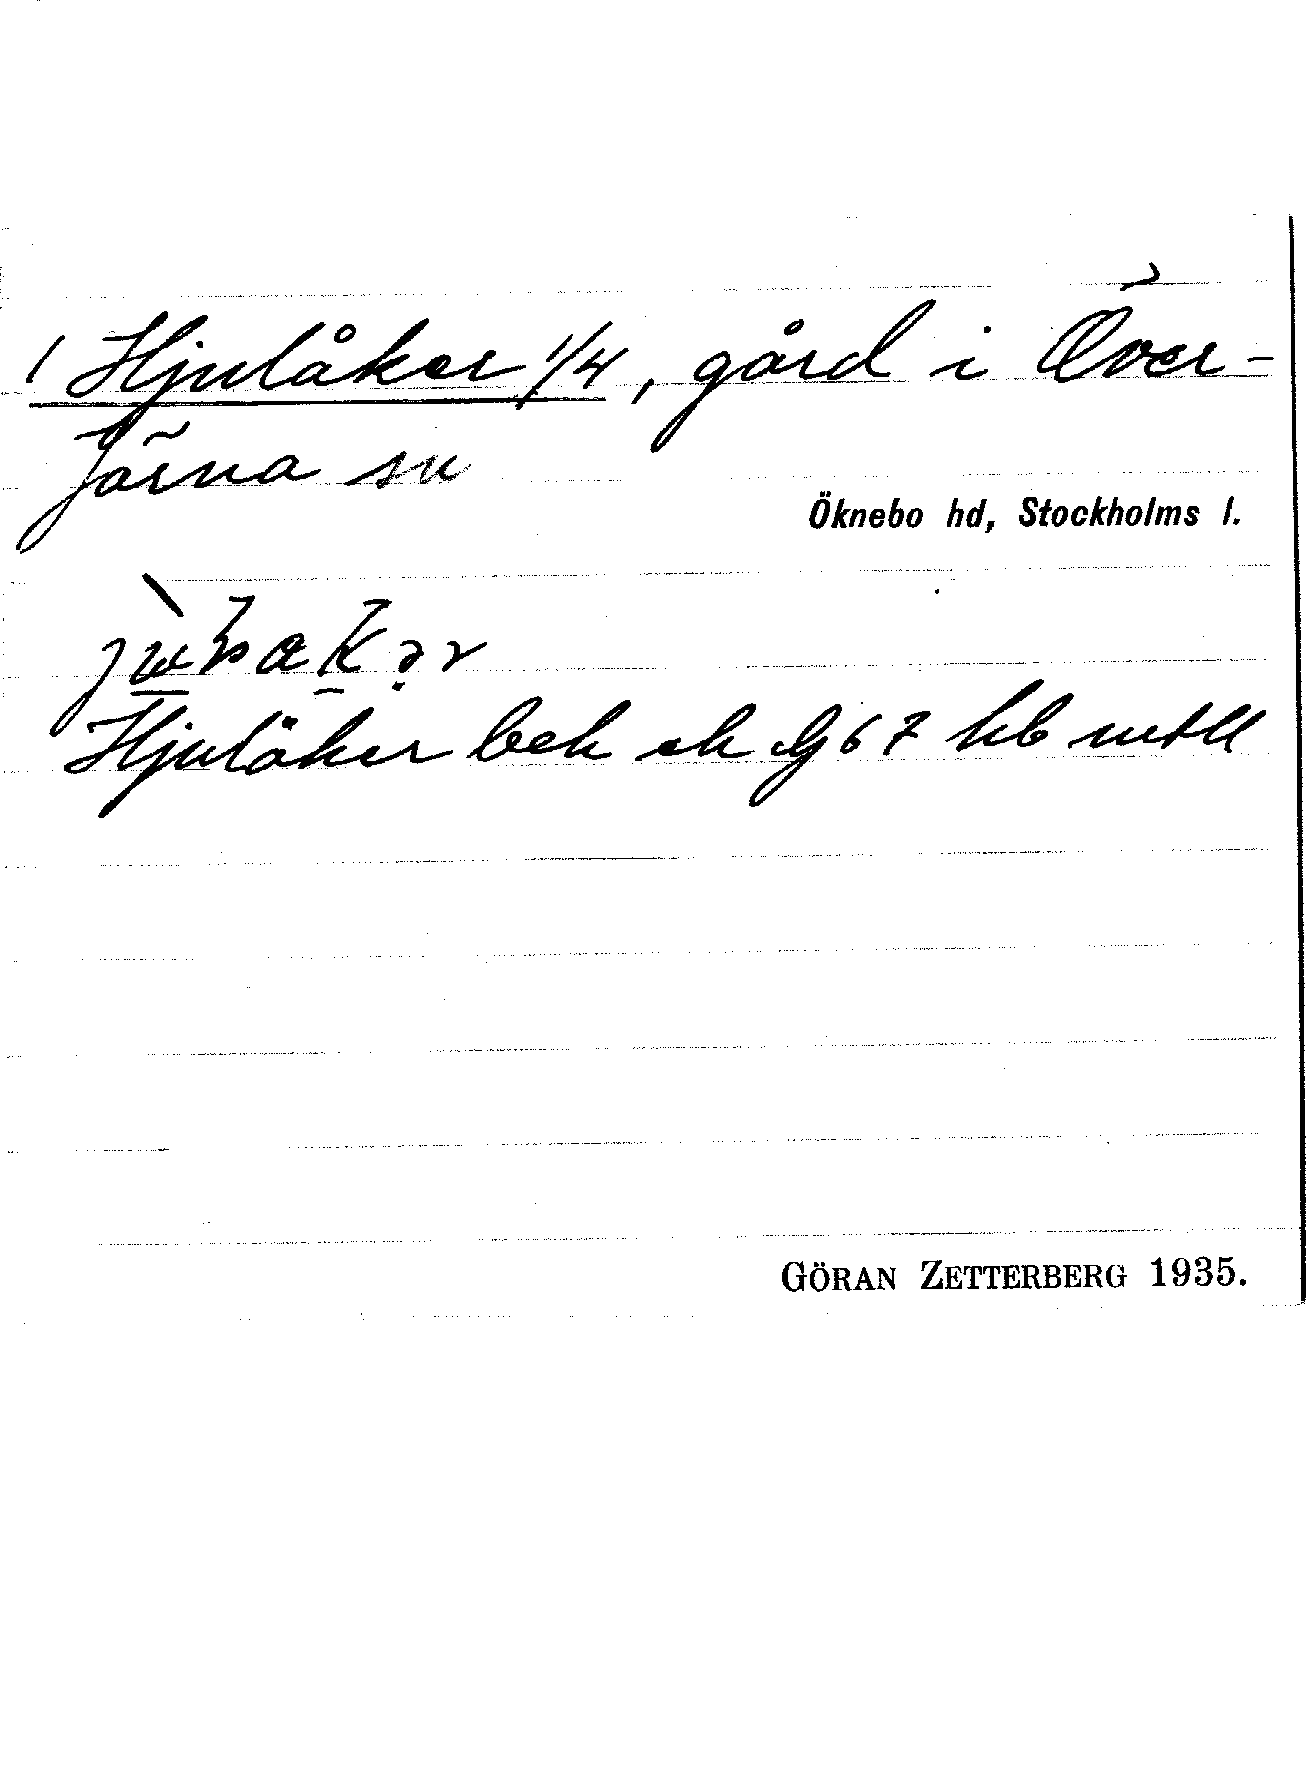 1 Hjulåker 1/4, gård i Över-
järna sn
Öknebo hd, Stockholms l.
Hjulåker bek ek G 67 hb mtll
GÖRAN ZETTERBERG 1935.